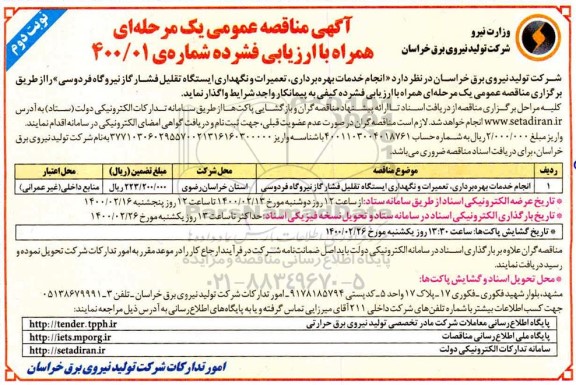 نوبت دوم
وزارت نیرو
شرکت تولید نیروی برق خراسان
آگهی مناقصه عمومی یک مرحله‌ای
همراه با ارزیابی فشرده شماره‌ی ۴۰۰/۰۱
شرکت تولید نیروی برق خراسان در نظر دارد «انجام خدمات بهره‌برداری، تعمیرات و نگهداری ایستگاه تقلیل فشار گاز نیروگاه فردوسی» را از طریق
برگزاری مناقصه عمومی یک مرحله‌ای همراه با ارزیابی فشرده کیفی به پیمانکار واجد شرایط واگذار نماید.
کلیه مراحل برگزاری مناقصه از دریافت اسناد تا ارائه پیشنهاد مناقصه‌گران و بازگشایی پاکت‌ها از طریق سامانه تدارکات الکترونیکی دولت (ستاد) به آدرس
www.setadiran.ir انجام خواهد شد. لازم است مناقصه‌گران در صورت عدم عضویت قبلی، جهت ثبت نام و دریافت گواهی امضای الکترونیکی در سامانه اقدام نمایند.
واریز مبلغ ۲/۰۰۰/۰۰۰ ریال به شماره حساب با شناسه واریز به نام شرکت تولید نیروی برق
خراسان، برای دریافت اسناد مناقصه ضروری می‌باشد.
ردیف موضوع مناقصه محل شرکت مبلغ تضمین (ریال) محل اعتبار
۱ انجام خدمات بهره‌برداری، تعمیرات و نگهداری ایستگاه تقلیل فشار گاز نیروگاه فردوسی استان خراسان رضوی ۲۲۳/۲۰۰/۰۰۰ ریال منابع داخلی (غیر عمرانی)
* تاریخ عرضه الکترونیکی اسناد از طریق سامانه ستاد: از ساعت ۱۲ روز دوشنبه مورخ ۱۴۰۰/۰۲/۱۳ تا ساعت ۱۲ روز پنجشنبه ۱۴۰۰/۰۲/۱۶
* تاریخ بارگذاری الکترونیکی اسناد در سامانه ستاد و تحویل نسخه فیزیکی اسناد: حداکثر تا ساعت ۱۳ روز یکشنبه مورخ ۱۴۰۰/۰۲/۲۶
* تاریخ گشایش پاکت‌ها: ساعت ۱۳:۳۰ روز یکشنبه مورخ ۱۴۰۰/۰۲/۲۶
مناقصه گران علاوه بر بارگذاری اسناد در سامانه الکترونیکی دولت باید اصل ضمانت‌نامه شرکت در فرآیند ارجاع کار را در موعد مقرر به امور تدارکات شرکت تحویل نموده و
رسید دریافت نمایند.
* محل تحویل اسناد و گشایش پاکت‌ها:
مشهد، بلوار شهید فکوری - فکوری ۱۷ - پلاک ۱۷ واحد ۵ - کدپستی ۹۱۷۸۱۸۵۷۹۴ - امور تدارکات شرکت تولید نیروی برق خراسان - تلفن ۳ - ۰۵۱۳۸۶۷۹۹۹۱
جهت کسب اطلاعات بیشتر با شماره تلفن‌های شرکت داخلی ۲۱۱ آقای میرزایی تماس گرفته و یا به پایگاه‌های اطلاع رسانی به آدرس ذیل مراجعه نمایند:
پایگاه اطلاع رسانی معاملات شرکت مادر تخصصی تولید نیروی برق حرارتی http://tender.tpph.ir
پایگاه ملی اطلاع رسانی مناقصات http://iets.mporg.ir
سامانه تدارکات الکترونیکی دولت http://setadiran.ir
امور تدارکات شرکت تولید نیروی برق خراسان
پایگاه اطلاع رسانی مناقصه و مزایده
۰۲۱-۸۸۳۴۹۶۷۰-۵